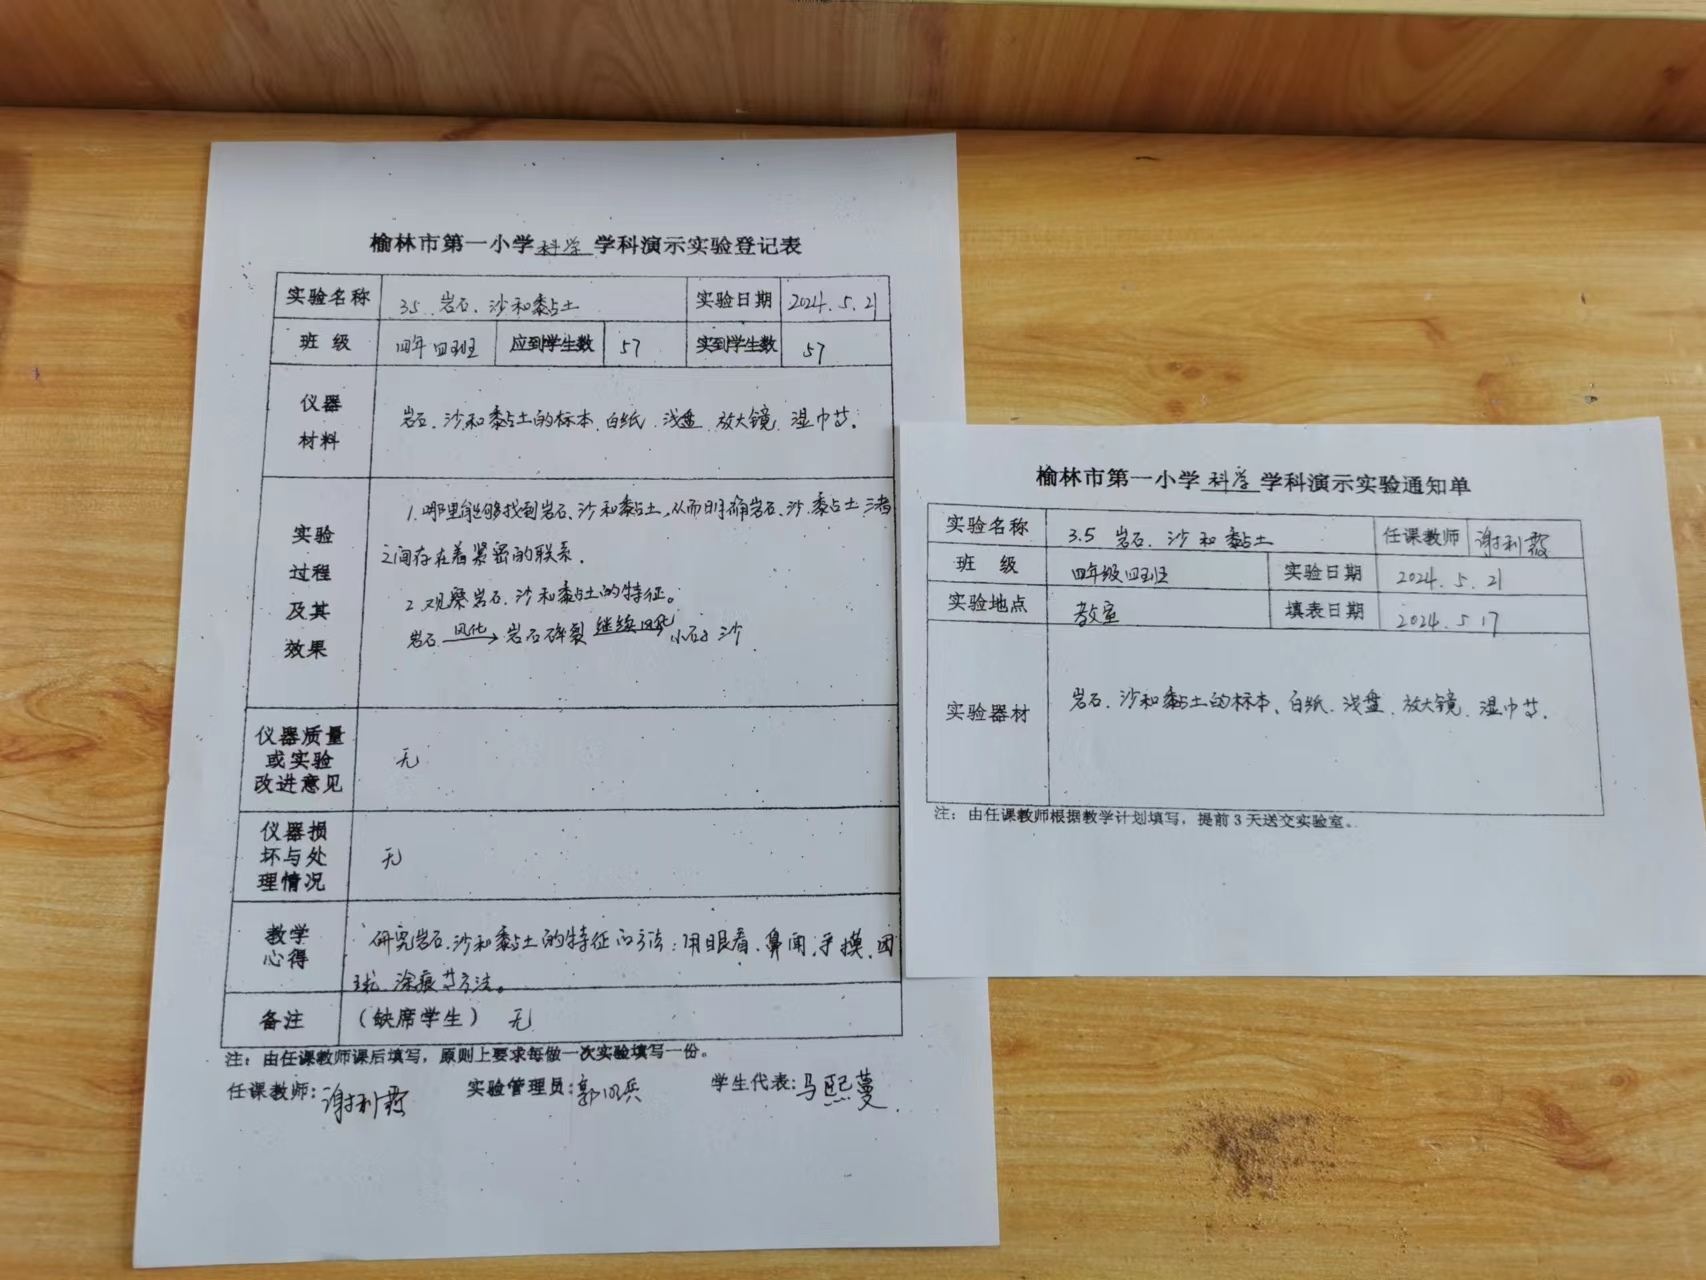 榆林市第一小学科学学科演示实验登记表
实验名称 3.5 岩石、沙和黏土 实验日期 2024.5.21
班 级 四年四班 应到学生数 57 实到学生数 57
仪器
材料
岩石、沙和黏土的标本、白纸、浅盘、放大镜、湿巾等。
实验
过程
及其
效果
1.哪里能够找到岩石、沙和黏土,从而明确岩石、沙、黏土三者
之间存在着紧密的联系.
2.观察岩石、沙和黏土的特征。
岩石 风化→ 岩石碎裂 继续风化 小石子 沙.
仪器质量
或实验
改进意见
无
仪器损
坏与处
理情况
无
教学
心得
研究岩石、沙和黏土的特征的方法:用眼看、鼻闻、手摸、团
球、涂痕等方法。
备注 (缺席学生) 无
注:由任课教师课后填写,原则上要求每做一次实验填写一份。
任课教师:谢利霞 实验管理员:郭 兵 学生代表:马熙蔓
榆林市第一小学科学学科演示实验通知单
实验名称 3.5 岩石、沙和黏土 任课教师 谢利霞
班 级 四年级四班 实验日期 2024.5.21
实验地点 教室 填表日期 2024.5.17
实验器材 岩石、沙和黏土的标本、白纸、浅盘、放大镜、湿巾等.
注:由任课教师根据教学计划填写,提前3天送交实验室。